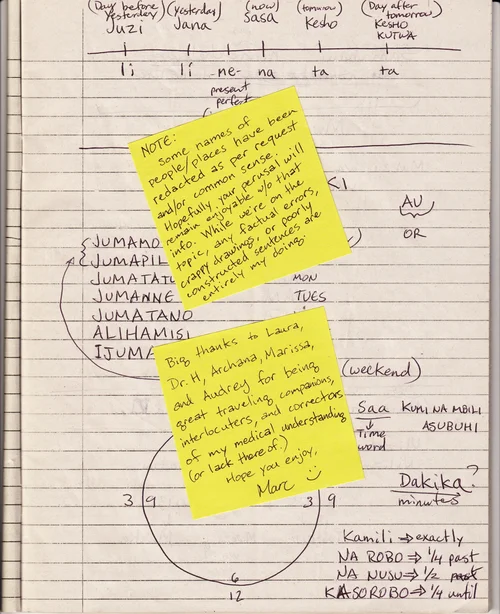 (Day before yesterday) (yesterday) (now) (tomorrow) (Day after tomorrow)
Juzi Jana Sasa Kesho KESHO KUTWA
li li me- na ta ta
present
perfect
NOTE:
Some names of
people/places have been
redacted as per request
and/or common sense.
Hopefully your perusal will
remain enjoyable w/o that
info. While we're on the
topic, any factual errors,
crappy drawings, or poorly
constructed sentences are
entirely my doing.
AU
OR
JUMAMO
JUMAPIL
JUMATATU
MON
JUMANNE
TUES
JUMATANO
ALIHAMISI
IJUMA
(weekend)
Big thanks to Laura,
Dr. H, Archana, Marissa,
and Audrey for being
great traveling companions,
interlocuters, and correctors
of my medical understanding
(or lack thereof.)
Hope you enjoy,
Marc
Saa KUMI NA MBILI
ASUBUHI
Time
word
3 9 3 9
6
12
Dakika?
minutes
Kamili → exactly
NA ROBO → 1/4 past
NA NUSU → 1/2 past
KASOROBO → 1/4 until